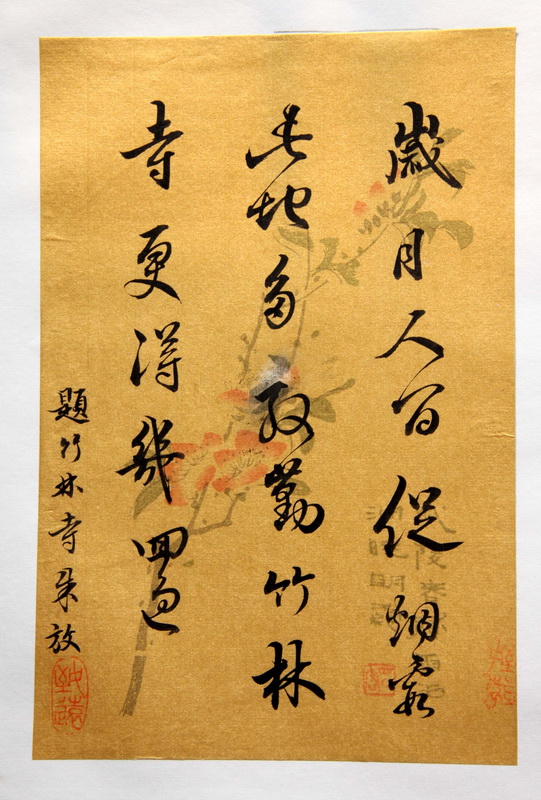 歲月人間促烟霞
此地多殷勤竹林
寺更得幾回過
題竹林寺朱放
致遠